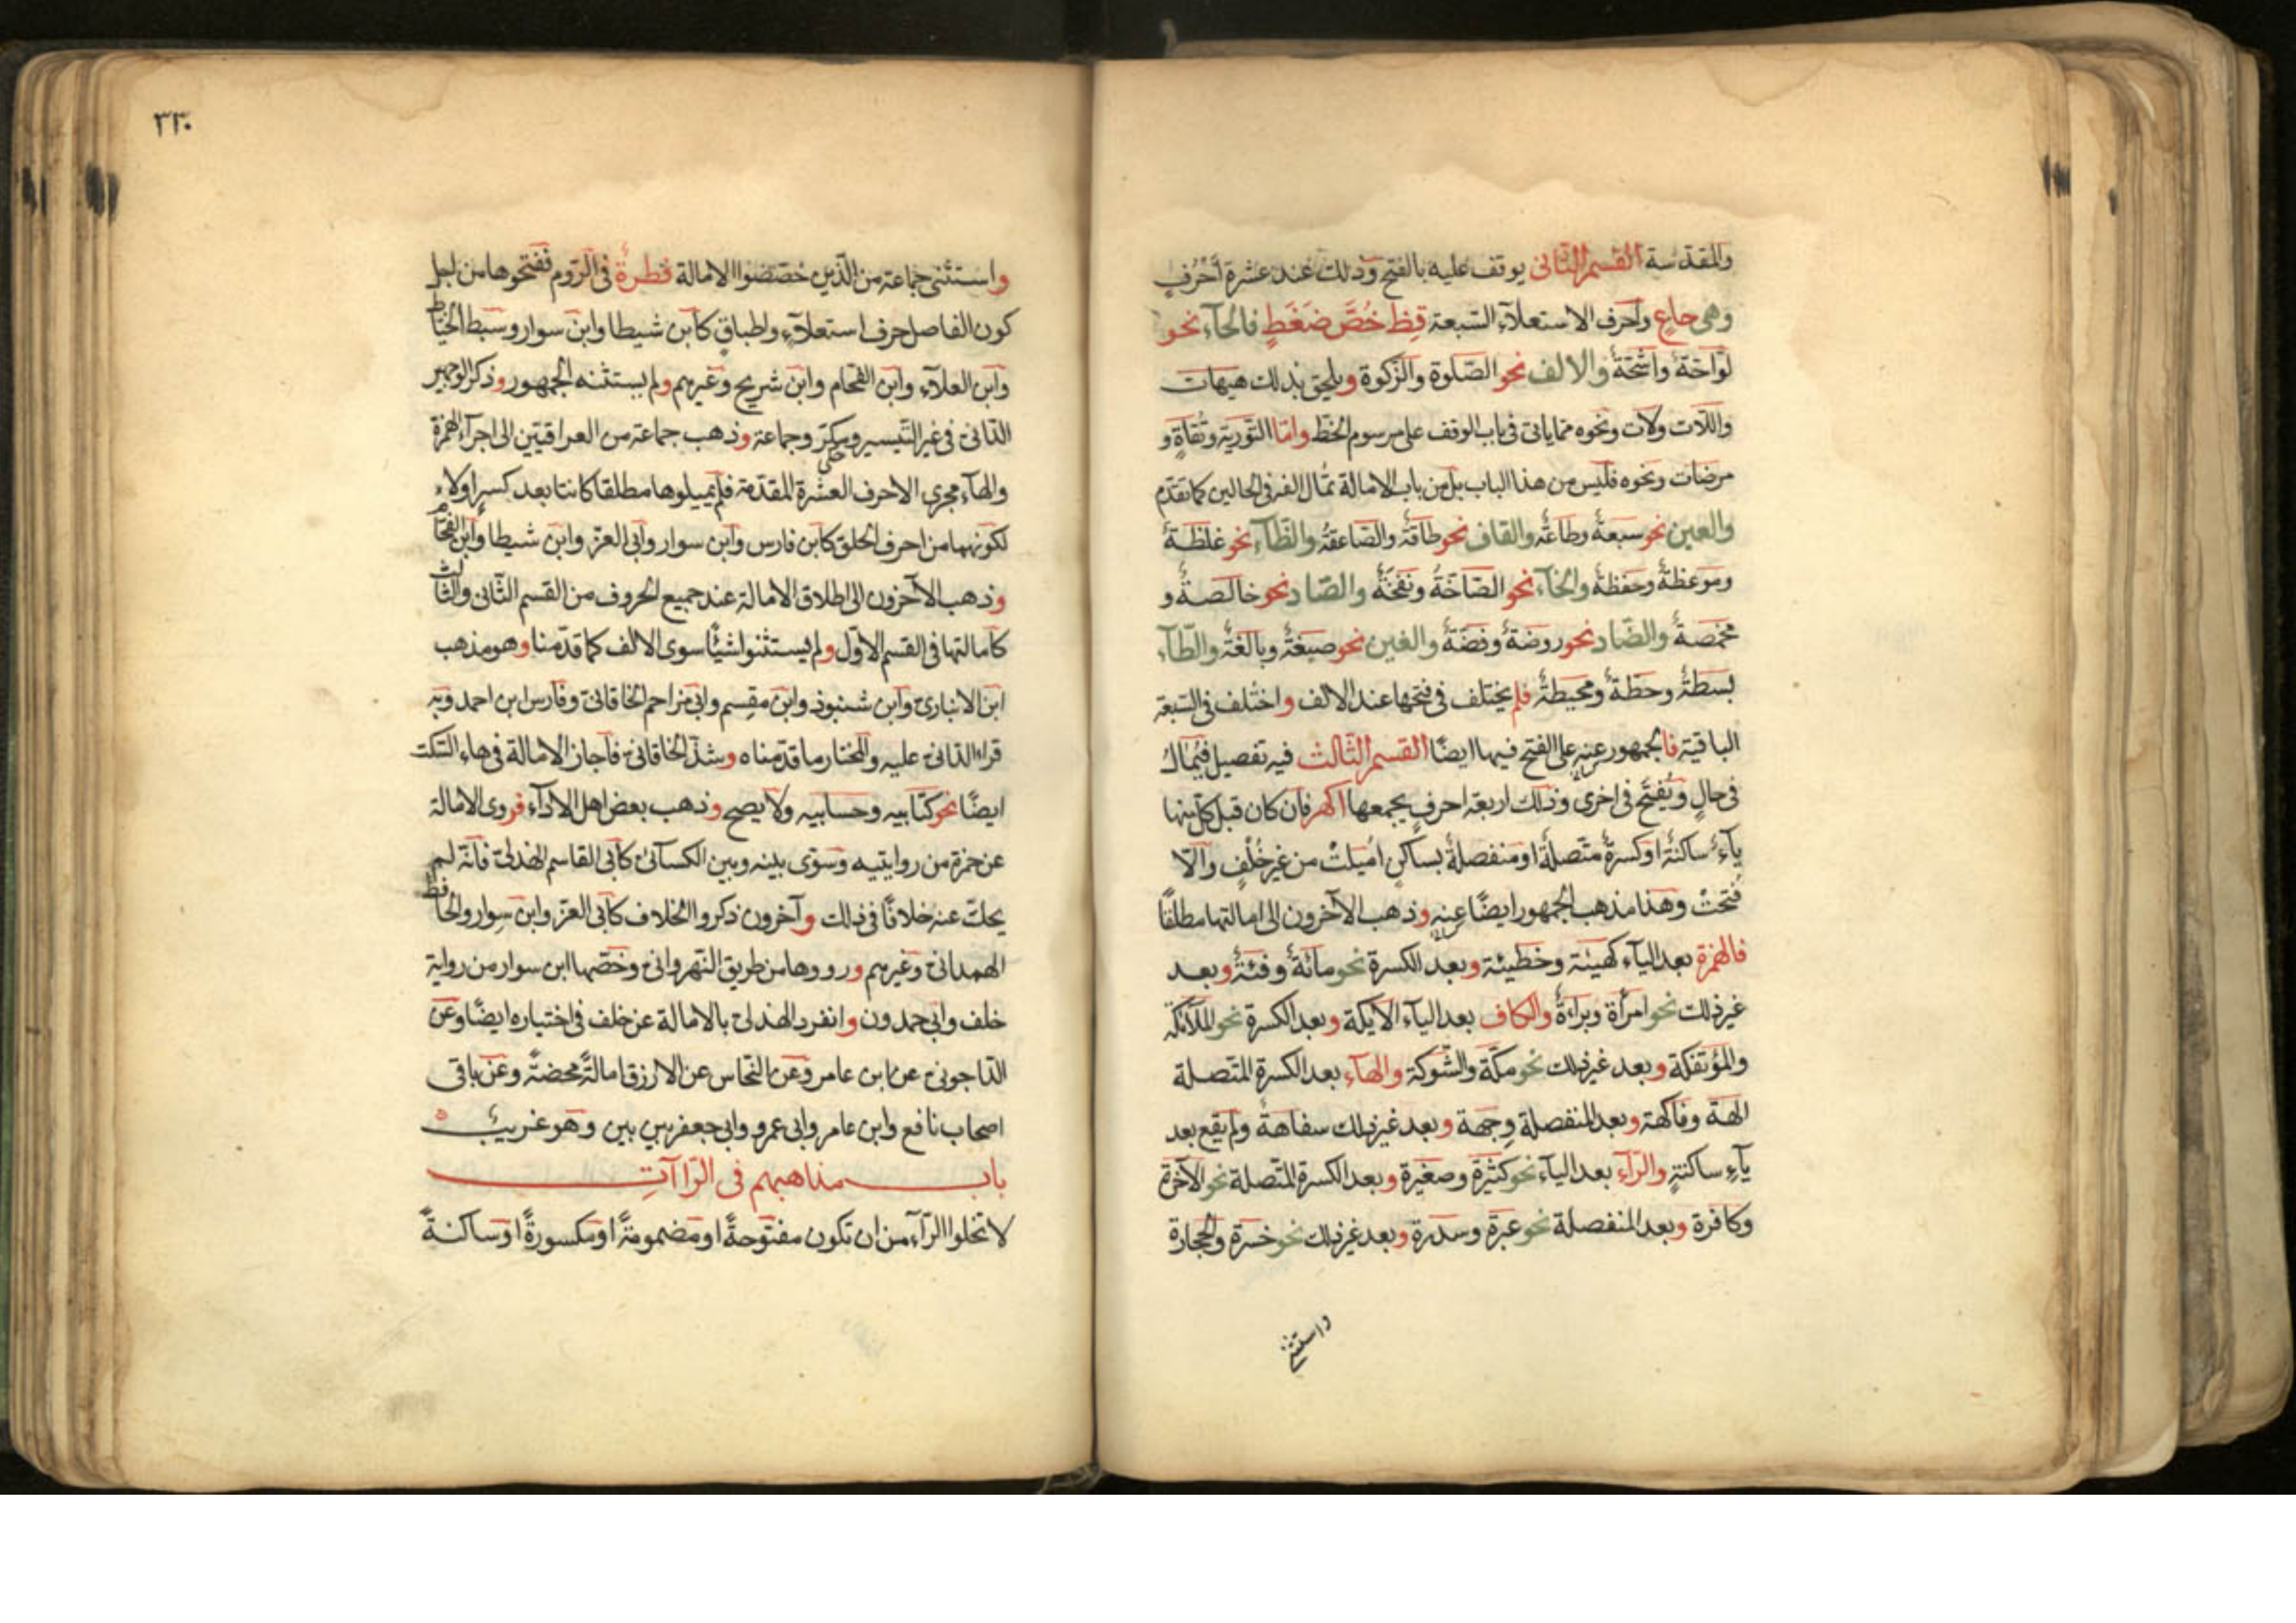 والمقدّسة القسم الثّانى يوقف عليه بالفتح وذلك عند عشرة أحرفٍ
وهى حاع واحرف الاستعلآء السّبعة قِظ خُصَّ ضَغْطٍ فالحآء نحو
لوّاحةٌ واشحّةً والالف نحو الصّلوة والزّكوة ويلحق بذلك هيهات
واللّات ولات ونحوه ممّا ياتى فى باب الوقف على مرسوم الخطّ وامّا التّورية وتُقاةً و
مرضات ونحوه فليس من هذا الباب بل من باب الامالة تُمال الفه فى الحالين كما تقدّم
والعين نحو سبعةٌ وطاعةٌ والقاف نحو طاقةٌ والصّاعقةُ والظّآء نحو غلظةً
وموعظةٌ وحفظةً والخآء نحو الصّاخّةُ ونفخةٌ والصّاد نحو خالصةٌ و
مخمصةٌ والضّاد نحو روضةٍ وفضّةٍ والغين نحو صبغةً وبالغةٌ والطّآء
بسطةً وحطّةٌ ومحيطةٌ فلم يختلف فى فتحها عند الالف واختلف فى التسعة
الباقية فالجمهور عنه على الفتح فيها ايضًا القسم الثّالث فيه تفصيل فيُمالُ
فى حالٍ ويُفتح فى اخرى وذلك اربعة احرفٍ يجمعها اكهر فان كان قبل كلّ منها
يآءٌ ساكنةٌ او كسرةٌ متّصلةٌ او منفصلةٌ بساكنٍ اُميلتْ من غير خُلفٍ والّا
فتحتْ وهذا مذهب الجمهور ايضًا عنه وذهب الآخرون الى امالتها مطلقًا
فالهمزة بعد اليآء كهيئة وخطيئة وبعد الكسرة نحو مائةٌ وفئةٌ وبعد
غير ذلك نحو امرأة وبراءةٌ والكاف بعد اليآء الايكة وبعد الكسرة نحو الملآئكة
والمؤتفكة وبعد غير ذلك نحو مكّة والشّوكة والهآء بعد الكسرة المتّصلة
الهة وفاكهة وبعد المنفصلة وِجهة وبعد غير ذلك سفاهة ولم يقع بعد
يآءٍ ساكنةٍ والرّآء بعد اليآء نحو كثيرة وصغيرة وبعد الكسرة المتّصلة نحو الآخرة
وكافرة وبعد المنفصلة نحو عبرة وسدرة وبعد غير ذلك نحو حسرة والحجارة
واستثنى
٣٣٠
واستثنى جماعة من الّذين خصّصوا الامالة فطرةَ فى الرّوم ففتحوها من اجل
كون الفاصل حرف استعلآءٍ واطباقٍ كابن شيطا وابن سوار وسبط الخيّاط
وابن العلآء وابن الفحّام وابن شريح وغيرهم ولم يستثنه الجمهور وذكر الوجهين
الدّانى فى غير التّيسير ومكىّ وجماعة وذهب جماعة من العراقيّين الى اجرآء الهمزة
والهآء مجرى الاحرف العشرة المقدّمة فلم يميلوها مطلقا كانتا بعد كسرٍ اولاء
لكونهما من احرف الحلق كابن فارس وابن سوار وابى العزّ وابن شيطا وابن الفحّام
وذهب الآخرون الى اطلاق الامالة عند جميع الحروف من القسم الثّانى والثّالث
كامالتها فى القسم الاوّل ولم يستثنوا شيئًا سوى الالف كما قدّمنا وهو مذهب
ابن الانبارىّ وابن شنبوذ وابن مقسم وابى مزاحم الخاقانىّ وفارس ابن احمد وبه
قراء الدّانىّ عليه والمختار ما قدّمناه وشذّ الخاقانىّ فاجاز الامالة فى هاء السّكت
ايضًا نحو كتابيه وحسابيه ولا يصح وذهب بعض اهل الادآء فروى الامالة
عن حمزة من روايتيه وسوّى بينه وبين الكسآئىّ كابى القاسم الهذلىّ فانّه لم
يحك عنه خلافًا فى ذلك وآخرون ذكروا الخلاف كابى العزّ وابن سوار والحافظ
الهمدانىّ وغيرهم ورووها من طريق النّهروانىّ وخصّها ابن سوار من رواية
خلف وابى حمدون وانفرد الهذلىّ بالامالة عن خلف فى اختياره ايضًا وعن
الدّاجونىّ عن ابن عامر وعن النّحاس عن الازرق امالةً محضةً وعن باقى
اصحاب نافع وابن عامر وابى عمرو وابى جعفر بين بين وهو غريبٌ
باب مذاهبهم فى الرّاآتِ
لا تخلوا الرّآء من ان تكون مفتوحةً او مضمومةً او مكسورةً او ساكنةً